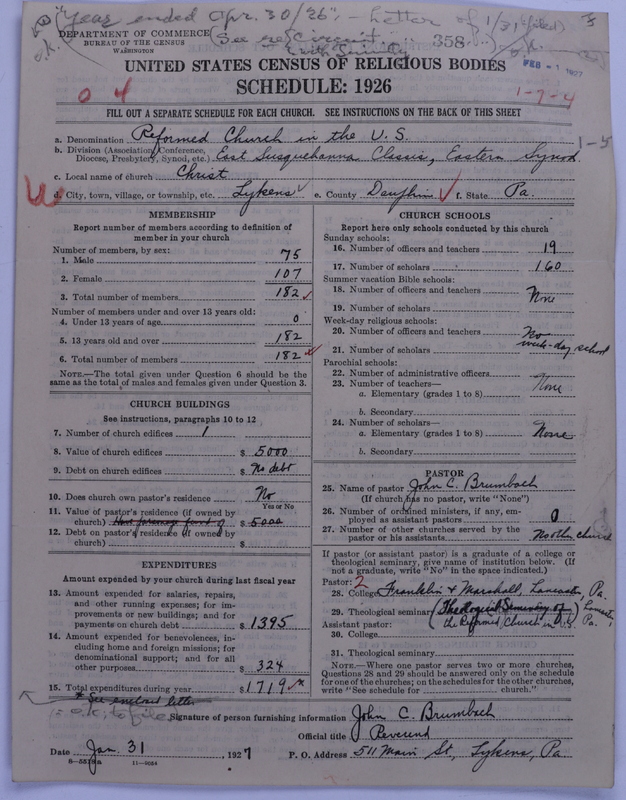 Year ended Apr. 30/26; - Letter of 1/31 (filed)
o.k.
DEPARTMENT OF COMMERCE
BUREAU OF THE CENSUS
WASHINGTON
(See re Circuit
with
358
o.k.
FEB - 1 1927
UNITED STATES CENSUS OF RELIGIOUS BODIES
SCHEDULE: 1926
0 4
1-7-4
FILL OUT A SEPARATE SCHEDULE FOR EACH CHURCH. SEE INSTRUCTIONS ON THE BACK OF THIS SHEET
a. Denomination Reformed Church in the U.S.
1-5
b. Division (Association, Conference, Diocese, Presbytery, Synod, etc.) East Susquehanna Classis, Eastern Synod
c. Local name of church Christ
d. City, town, village, or township, etc. Lykens e. County Dauphin f. State Pa.
MEMBERSHIP
Report number of members according to definition of
member in your church
Number of members, by sex:
1. Male 75
2. Female 107
3. Total number of members 182
Number of members under and over 13 years old:
4. Under 13 years of age 0
5. 13 years old and over 182
6. Total number of members 182
NOTE.—The total given under Question 6 should be
same as the total of males and females given under Question 3.
CHURCH BUILDINGS
See instructions, paragraphs 10 to 12
7. Number of church edifices 1
8. Value of church edifices $ 5000
9. Debt on church edifices $ No debt
10. Does church own pastor's residence No
Yes or No
11. Value of pastor's residence (if owned by
church) $ 5000
12. Debt on pastor's residence (if owned by
church) $
EXPENDITURES
Amount expended by your church during last fiscal year
13. Amount expended for salaries, repairs,
and other running expenses; for im-
provements or new buildings; and for
payments on church debt $ 1395
14. Amount expended for benevolences, in-
cluding home and foreign missions; for
denominational support; and for all
other purposes $ 324
15. Total expenditures during year $ 1719 *
* See enclosed letter
is o.k.; to file
CHURCH SCHOOLS
Report here only schools conducted by this church
Sunday schools:
16. Number of officers and teachers 19
17. Number of scholars 160
Summer vacation Bible schools:
18. Number of officers and teachers None
19. Number of scholars
Week-day religious schools:
20. Number of officers and teachers No
week-day school
21. Number of scholars
Parochial schools:
22. Number of administrative officers
23. Number of teachers— None
a. Elementary (grades 1 to 8)
b. Secondary
24. Number of scholars—
a. Elementary (grades 1 to 8) None
b. Secondary
PASTOR
25. Name of pastor John C. Brumbach
(If church has no pastor, write "None")
26. Number of ordained ministers, if any, em-
ployed as assistant pastors 0
27. Number of other churches served by the
pastor or his assistants No other church
If pastor (or assistant pastor) is a graduate of a college or
theological seminary, give name of institution below. (If
not a graduate, write "No" in the space indicated.)
Pastor: 2
28. College Franklin & Marshall, Lancaster, Pa.
29. Theological seminary (Theological Seminary of
the Reformed Church in U.S.) Lancaster, Pa.
Assistant pastor:
30. College
31. Theological seminary
NOTE.—Where one pastor serves two or more churches,
Questions 28 and 29 should be answered only on the schedule
for one of the churches; on the schedules for the other churches,
write "See schedule for church."
Signature of person furnishing information John C. Brumbach
Official title Reverend
Date Jan. 31, 1927 P. O. Address 511 Main St., Lykens, Pa
8-5519a 11-9084